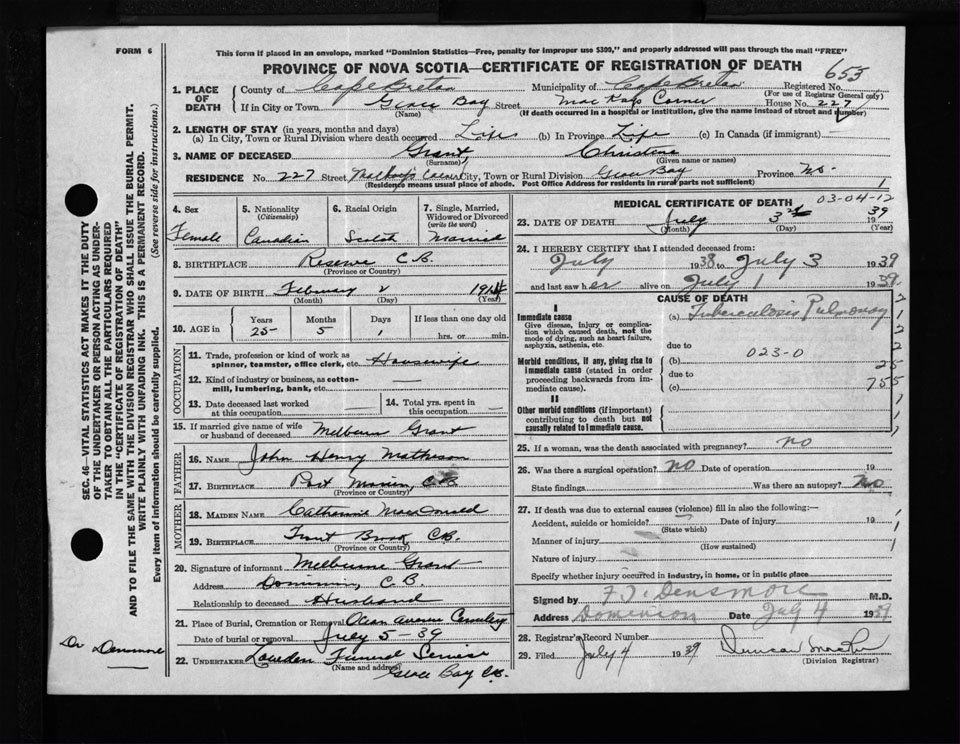 FORM 6
This form if placed in an envelope, marked "Dominion Statistics—Free, penalty for improper use $300," and properly addressed will pass through the mail "FREE"
PROVINCE OF NOVA SCOTIA—CERTIFICATE OF REGISTRATION OF DEATH
653
1. PLACE OF DEATH
County of Cape Breton Municipality of Cape Breton Registered No.
(For use of Registrar General only)
If in City or Town Glace Bay Street MacKays Corner House No. 227
(Name) (If death occurred in a hospital or institution, give the name instead of street and number)
2. LENGTH OF STAY (in years, months and days)
(a) In City, Town or Rural Division where death occurred Life (b) In Province Life (c) In Canada (if immigrant) —
3. NAME OF DECEASED Grant, Christina
(Surname) (Given name or names)
RESIDENCE No. 227 Street City, Town or Rural Division Glace Bay Province N.S.
(Residence means usual place of abode. Post Office Address for residents in rural parts not sufficient) 1
4. Sex Female
5. Nationality (Citizenship) Canadian
6. Racial Origin Scotch
7. Single, Married, Widowed or Divorced (write the word) Married
8. BIRTHPLACE Reserve C.B.
(Province or Country)
9. DATE OF BIRTH February 2 1914
(Month) (Day) (Year)
10. AGE in Years Months Days If less than one day old
25 5 1 hrs. or min.
OCCUPATION
11. Trade, profession or kind of work as spinner, teamster, office clerk, etc. Housewife
12. Kind of industry or business, as cotton-mill, lumbering, bank, etc. —
13. Date deceased last worked at this occupation — 14. Total yrs. spent in this occupation —
15. If married give name of wife or husband of deceased Melbourn Grant
FATHER
16. NAME John Henry Matheson
17. BIRTHPLACE Port Morien, C.B.
(Province or Country)
MOTHER
18. MAIDEN NAME Catherine MacDonald
19. BIRTHPLACE Trout Brook C.B.
(Province or Country)
20. Signature of informant Melbourne Grant
Address Dominion, C.B.
Relationship to deceased Husband
21. Place of Burial, Cremation or Removal Ocean Avenue Cemetery
Date of burial or removal July 5-39
22. UNDERTAKER Funeral Service
(Name and address) Glace Bay C.B.
MEDICAL CERTIFICATE OF DEATH 03-04-12
23. DATE OF DEATH July 3 1939
(Month) (Day) (Year)
24. I HEREBY CERTIFY that I attended deceased from:
July 1938 to July 3 1939
and last saw her alive on July 1 1939
CAUSE OF DEATH
I
Immediate cause
Give disease, injury or complication which caused death, not the mode of dying, such as heart failure, asphyxia, asthenia, etc.
(a) Tuberculosis Pulmonary
due to
Morbid conditions, if any, giving rise to immediate cause (stated in order proceeding backwards from immediate cause).
(b) 023-0
due to 25
(c) 755
II
Other morbid conditions (important) contributing to death but not causally related to immediate cause.
25. If a woman, was the death associated with pregnancy? no
26. Was there a surgical operation? no Date of operation 19
State findings Was there an autopsy? No
27. If death was due to external causes (violence) fill in also the following:—
Accident, suicide or homicide? Date of injury 19
(State which)
Manner of injury
(How sustained)
Nature of injury
Specify whether injury occurred in industry, in home, or in public place
Signed by F.T. Densmore M.D.
Address Dominion Date July 4 1939
28. Registrar's Record Number
29. Filed July 4 1939 Duncan
(Division Registrar)
SEC. 46—VITAL STATISTICS ACT MAKES IT THE DUTY
OF THE UNDERTAKER OR PERSON ACTING AS UNDER-
TAKER TO OBTAIN ALL THE PARTICULARS REQUIRED
IN THE "CERTIFICATE OF REGISTRATION OF DEATH"
AND TO FILE THE SAME WITH THE DIVISION REGISTRAR WHO SHALL ISSUE THE BURIAL PERMIT.
WRITE PLAINLY WITH UNFADING INK. THIS IS A PERMANENT RECORD.
Every item of information should be carefully supplied. (See reverse side for instructions.)
Dr Densmore